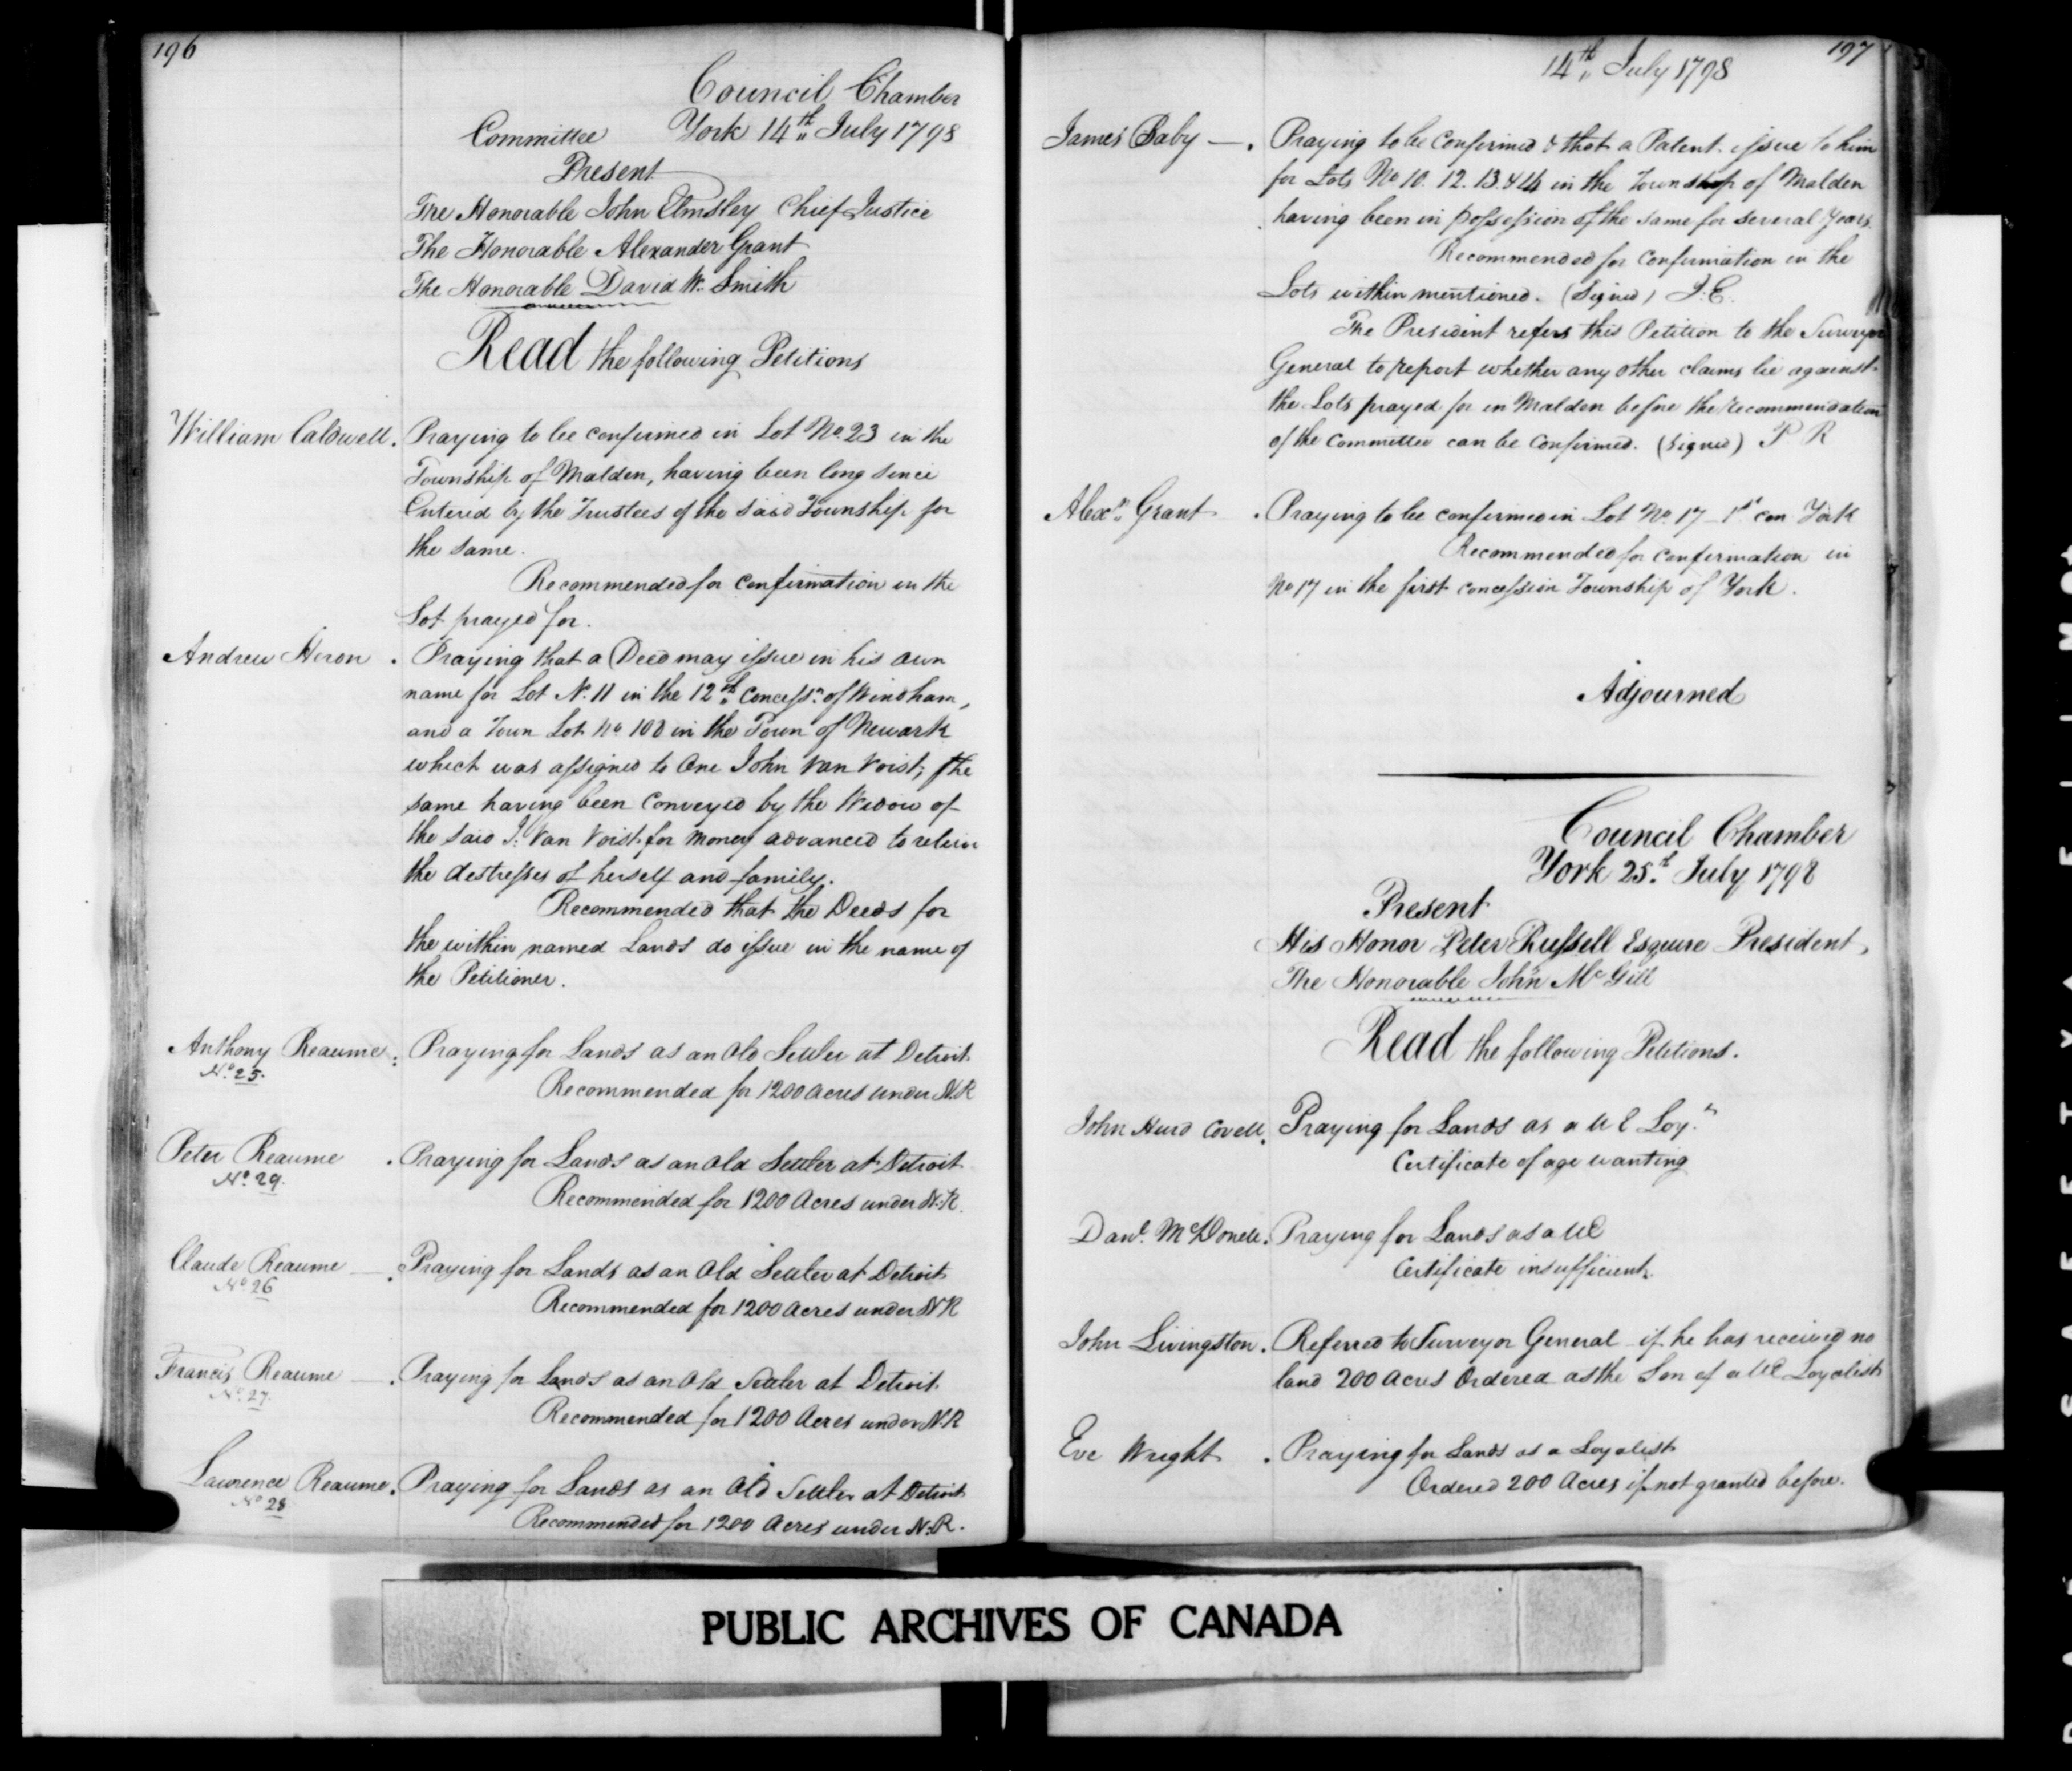 196
Council Chamber
Committee York 14th July 1798
Present
The Honorable John Elmsley Chief Justice
The Honorable Alexander Grant
The Honorable David W. Smith
Read the following Petitions
William Caldwell. Praying to be confirmed in Lot No. 23 in the
Township of Malden, having been long since
Entered by the Trustees of the said Township for
the same.
Recommended for confirmation in the
Lot prayed for.
Andrew Heron . Praying that a Deed may issue in his own
name for Lot N. 11 in the 12th Concessn. of Windham,
and a Town Lot No 108 in the Town of Newark
which was assigned to One John Van Voist, the
same having been Conveyed by the Widow of
the said J. Van Voist for money advanced to relieve
the distresses of herself and family.
Recommended that the Deeds for
the within named Lands do issue in the name of
the Petitioner.
Anthony Reaume : Praying for Lands as an Old Settler at Detroit
No. 25. Recommended for 1200 acres under N.R
Peter Reaume . Praying for Lands as an Old Settler at Detroit
No. 29. Recommended for 1200 Acres under N.R.
Claude Reaume — . Praying for Lands as an Old Settler at Detroit
No 26 Recommended for 1200 Acres under NR
Francis Reaume — . Praying for Lands as an Old Settler at Detroit.
No. 27. Recommended for 1200 Acres under N.R
Lawrence Reaume. Praying for Lands as an Old Settler at Detroit
No 28 Recommended for 1200 Acres under N.R.
197
14th July 1798
James Baby — . Praying to be Confirmed & that a Patent issue to him
for Lots No 10. 12. 13. & 14 in the Township of Malden
having been in possession of the same for several Years.
Recommended for Confirmation in the
Lots within mentioned. (Signed) J.E.
The President refers this Petition to the Surveyor
General to report whether any other claims lie against
the Lots prayed for in Malden before the recommendation
of the Committee can be Confirmed. (Signed) P R
Alexr. Grant . Praying to be confirmed in Lot No. 17 - 1st con York
Recommended for confirmation in
No 17 in the first concession Township of York.
Adjourned
Council Chamber
York 25th July 1798
Present
His Honor Peter Russell Esquire President,
The Honorable John McGill
Read the following Petitions.
John Hurd Covell. Praying for Lands as a U E Loyt.
Certificate of age wanting
Danl. McDonell. Praying for Lands as a UE
Certificate insufficient.
John Livingston. Referred to Surveyor General if he has received no
land 200 Acres Ordered as the Son of a UE Loyalist
Eve Wright . Praying for Lands as a Loyalist
Ordered 200 Acres if not granted before.
PUBLIC ARCHIVES OF CANADA